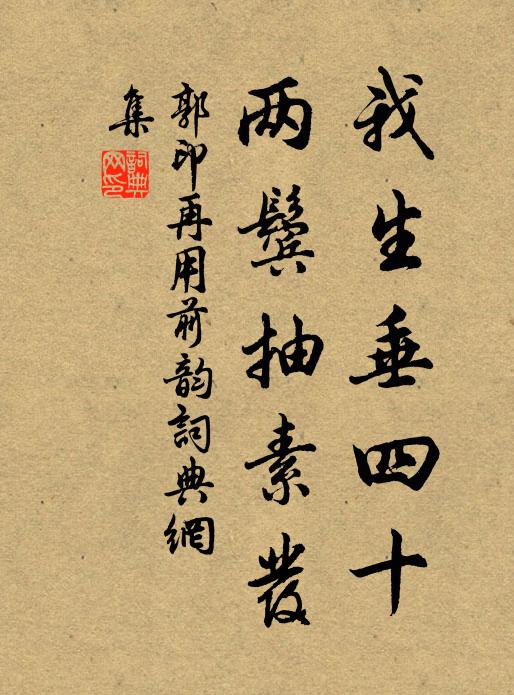 我生垂四十
两鬓抽素發
郭印再用前韵詞典網
集
詞典网印